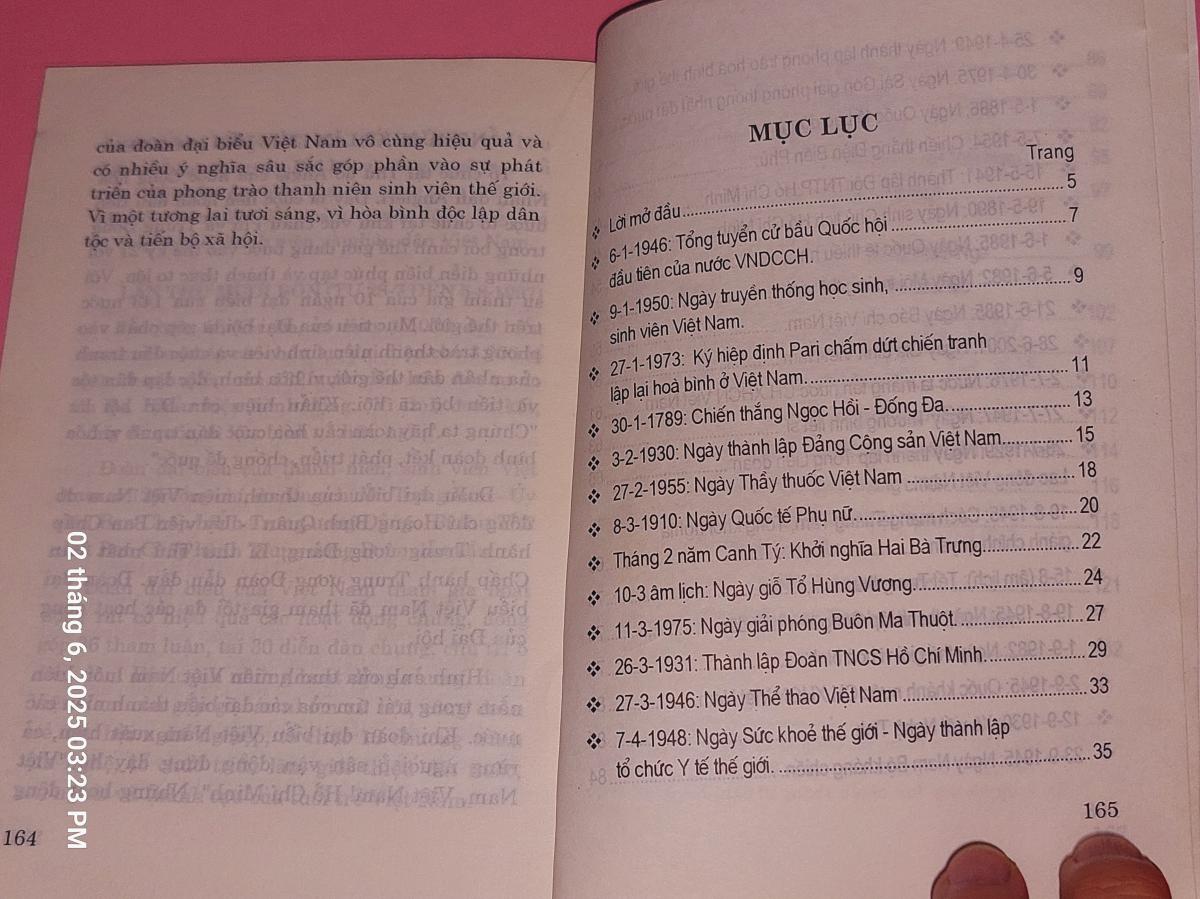 của đoàn đại biểu Việt Nam vô cùng hiệu quả và
có nhiều ý nghĩa sâu sắc góp phần vào sự phát
triển của phong trào thanh niên sinh viên thế giới.
Vì một tương lai tươi sáng, vì hòa bình độc lập dân
tộc và tiến bộ xã hội.
164
MỤC LỤC
Trang
❖ Lời mở đầu........................................5
❖ 6-1-1946: Tổng tuyển cử bầu Quốc hội ........................7
đầu tiên của nước VNDCCH.
❖ 9-1-1950: Ngày truyền thống học sinh, ........................9
sinh viên Việt Nam.
❖ 27-1-1973: Ký hiệp định Pari chấm dứt chiến tranh
lập lại hoà bình ở Việt Nam.....................................11
❖ 30-1-1789: Chiến thắng Ngọc Hồi - Đống Đa....................13
❖ 3-2-1930: Ngày thành lập Đảng Công sản Việt Nam..............15
❖ 27-2-1955: Ngày Thầy thuốc Việt Nam ........................18
❖ 8-3-1910: Ngày Quốc tế Phụ nữ................................20
❖ Tháng 2 năm Canh Tý: Khởi nghĩa Hai Bà Trưng.................22
❖ 10-3 âm lịch: Ngày giỗ Tổ Hùng Vương.........................24
❖ 11-3-1975: Ngày giải phóng Buôn Ma Thuột.....................27
❖ 26-3-1931: Thành lập Đoàn TNCS Hồ Chí Minh...................29
❖ 27-3-1946: Ngày Thể thao Việt Nam ..........................33
❖ 7-4-1948: Ngày Sức khoẻ thế giới - Ngày thành lập
tổ chức Y tế thế giới. ........................................35
165
02 tháng 6, 2025 03:23 PM